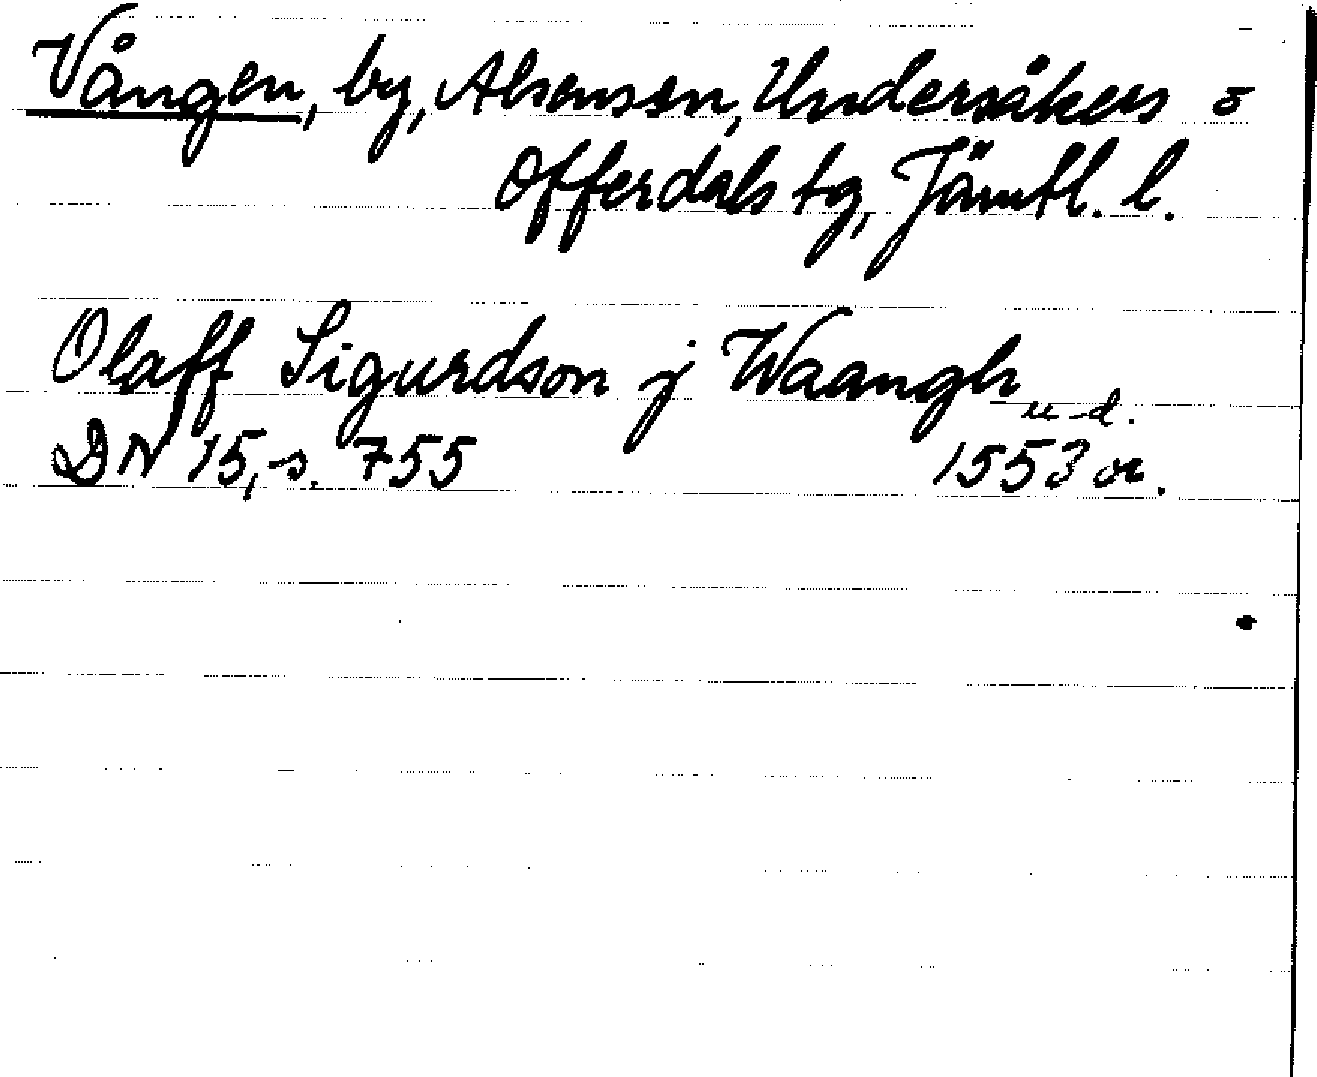 Vången, by, Alsensn, Undersåkers o
Offerdals tg, Jämtl. l.
Olaff Sigurdson j Waangh
u d.
DN 15, s. 755 1553 or.